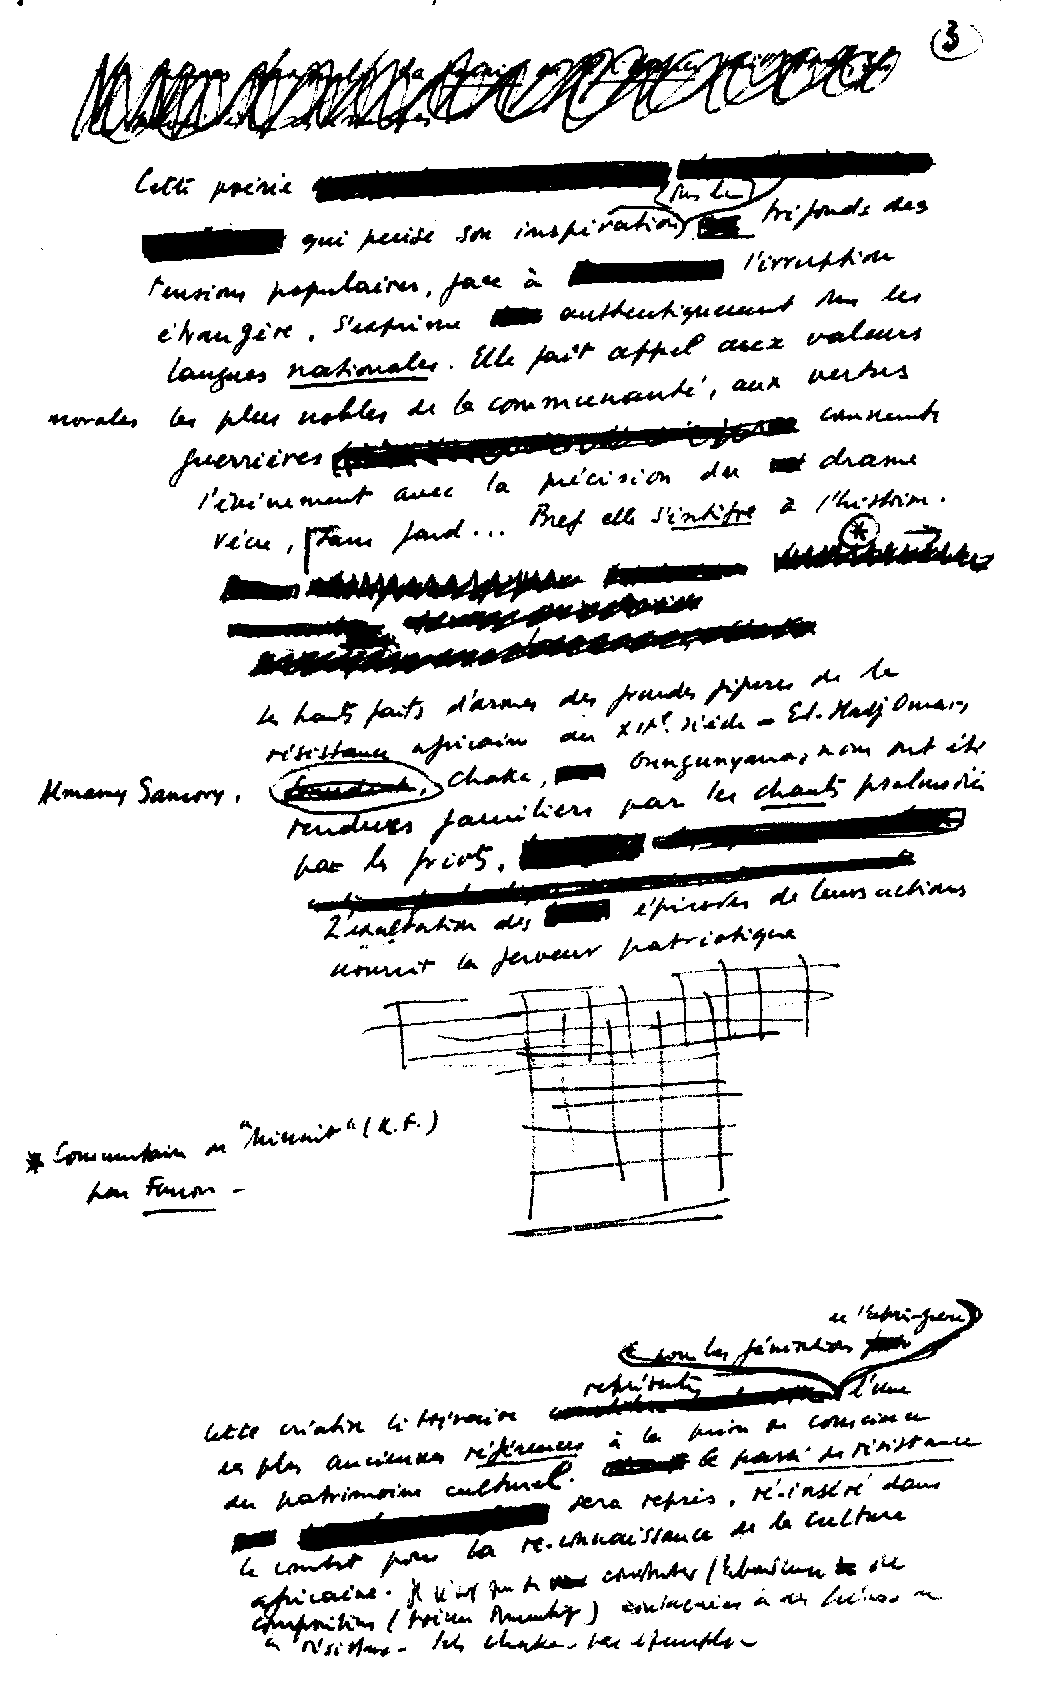 3
Cette poésie
sur les
qui puise son inspiration tréfonds des
tensions populaires, face à l'irruption
étrangère, s'exprime authentiquement dans les
langues nationales. Elle fait appel aux valeurs
morales les plus nobles de la communauté, aux vertus
guerrières consument
l'événement avec la précision du drame
vécu, sans fard... Bref elle s'intègre à l'histoire.
*
Les hauts faits d'armes des grandes figures de la
résistance africaine du XIXe siècle - El-Hadj Omar,
Almamy Samory, Chaka, Gungunyana, nous ont été
rendues familiers par les chants psalmodiés
par les griots.
L'exaltation des épisodes de leurs actions
nourrit la ferveur patriotique
* Commentaire de "Minuit" (K.F.)
par Fanon -
pour les générations
représente l'une
Cette création littéraire
des plus anciennes références à la prise de conscience
du patrimoine culturel. le passé de résistance
sera repris, ré-inséré dans
le combat pour la re-connaissance de la culture
africaine.
compositions à des héros de
la résistance - Chaka - par exemple